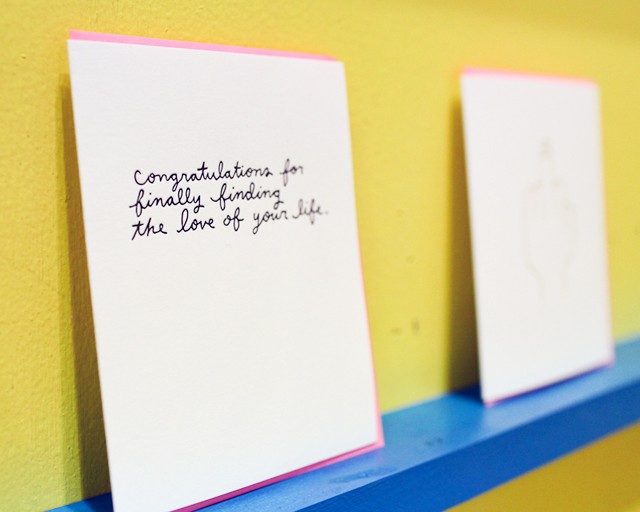 Congratulations for
finally finding
the love of your life.